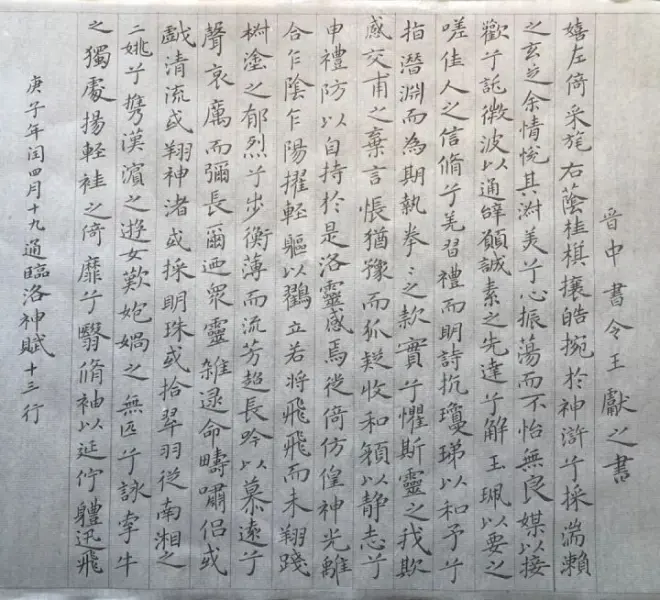 晋中書令王獻之書
嬉左倚采旄右蔭桂棋攘皓捥於神滸兮採湍瀨
之玄芝余情悅其淑美兮心振蕩而不怡無良媒以接
歡兮託微波以通辭願誠素之先達兮解玉珮以要之
嗟佳人之信脩兮羌習禮而明詩抗瓊珶以和予兮
指潛淵而為期執拳〻之款實兮懼斯靈之我欺
感交甫之棄言悵猶豫而狐疑收和顏以静志兮
申禮防以自持於是洛靈感焉徙倚仿偟神光離
合乍陰乍陽擢輕軀以鸖立若將飛飛而未翔踐
樹塗之郁烈兮步衡薄而流芳超長吟以慕遠兮
聲哀厲而彌長爾迺衆靈雜遝命疇嘯侶或
戲清流或翔神渚或採明珠或拾翠羽從南湘之
二姚兮携漢濱之遊女歎匏媧之無匹兮詠牽牛
之獨處揚輕袿之倚靡兮翳脩袖以延佇軆迅飛
庚子年闰四月十九通臨洛神賦十三行